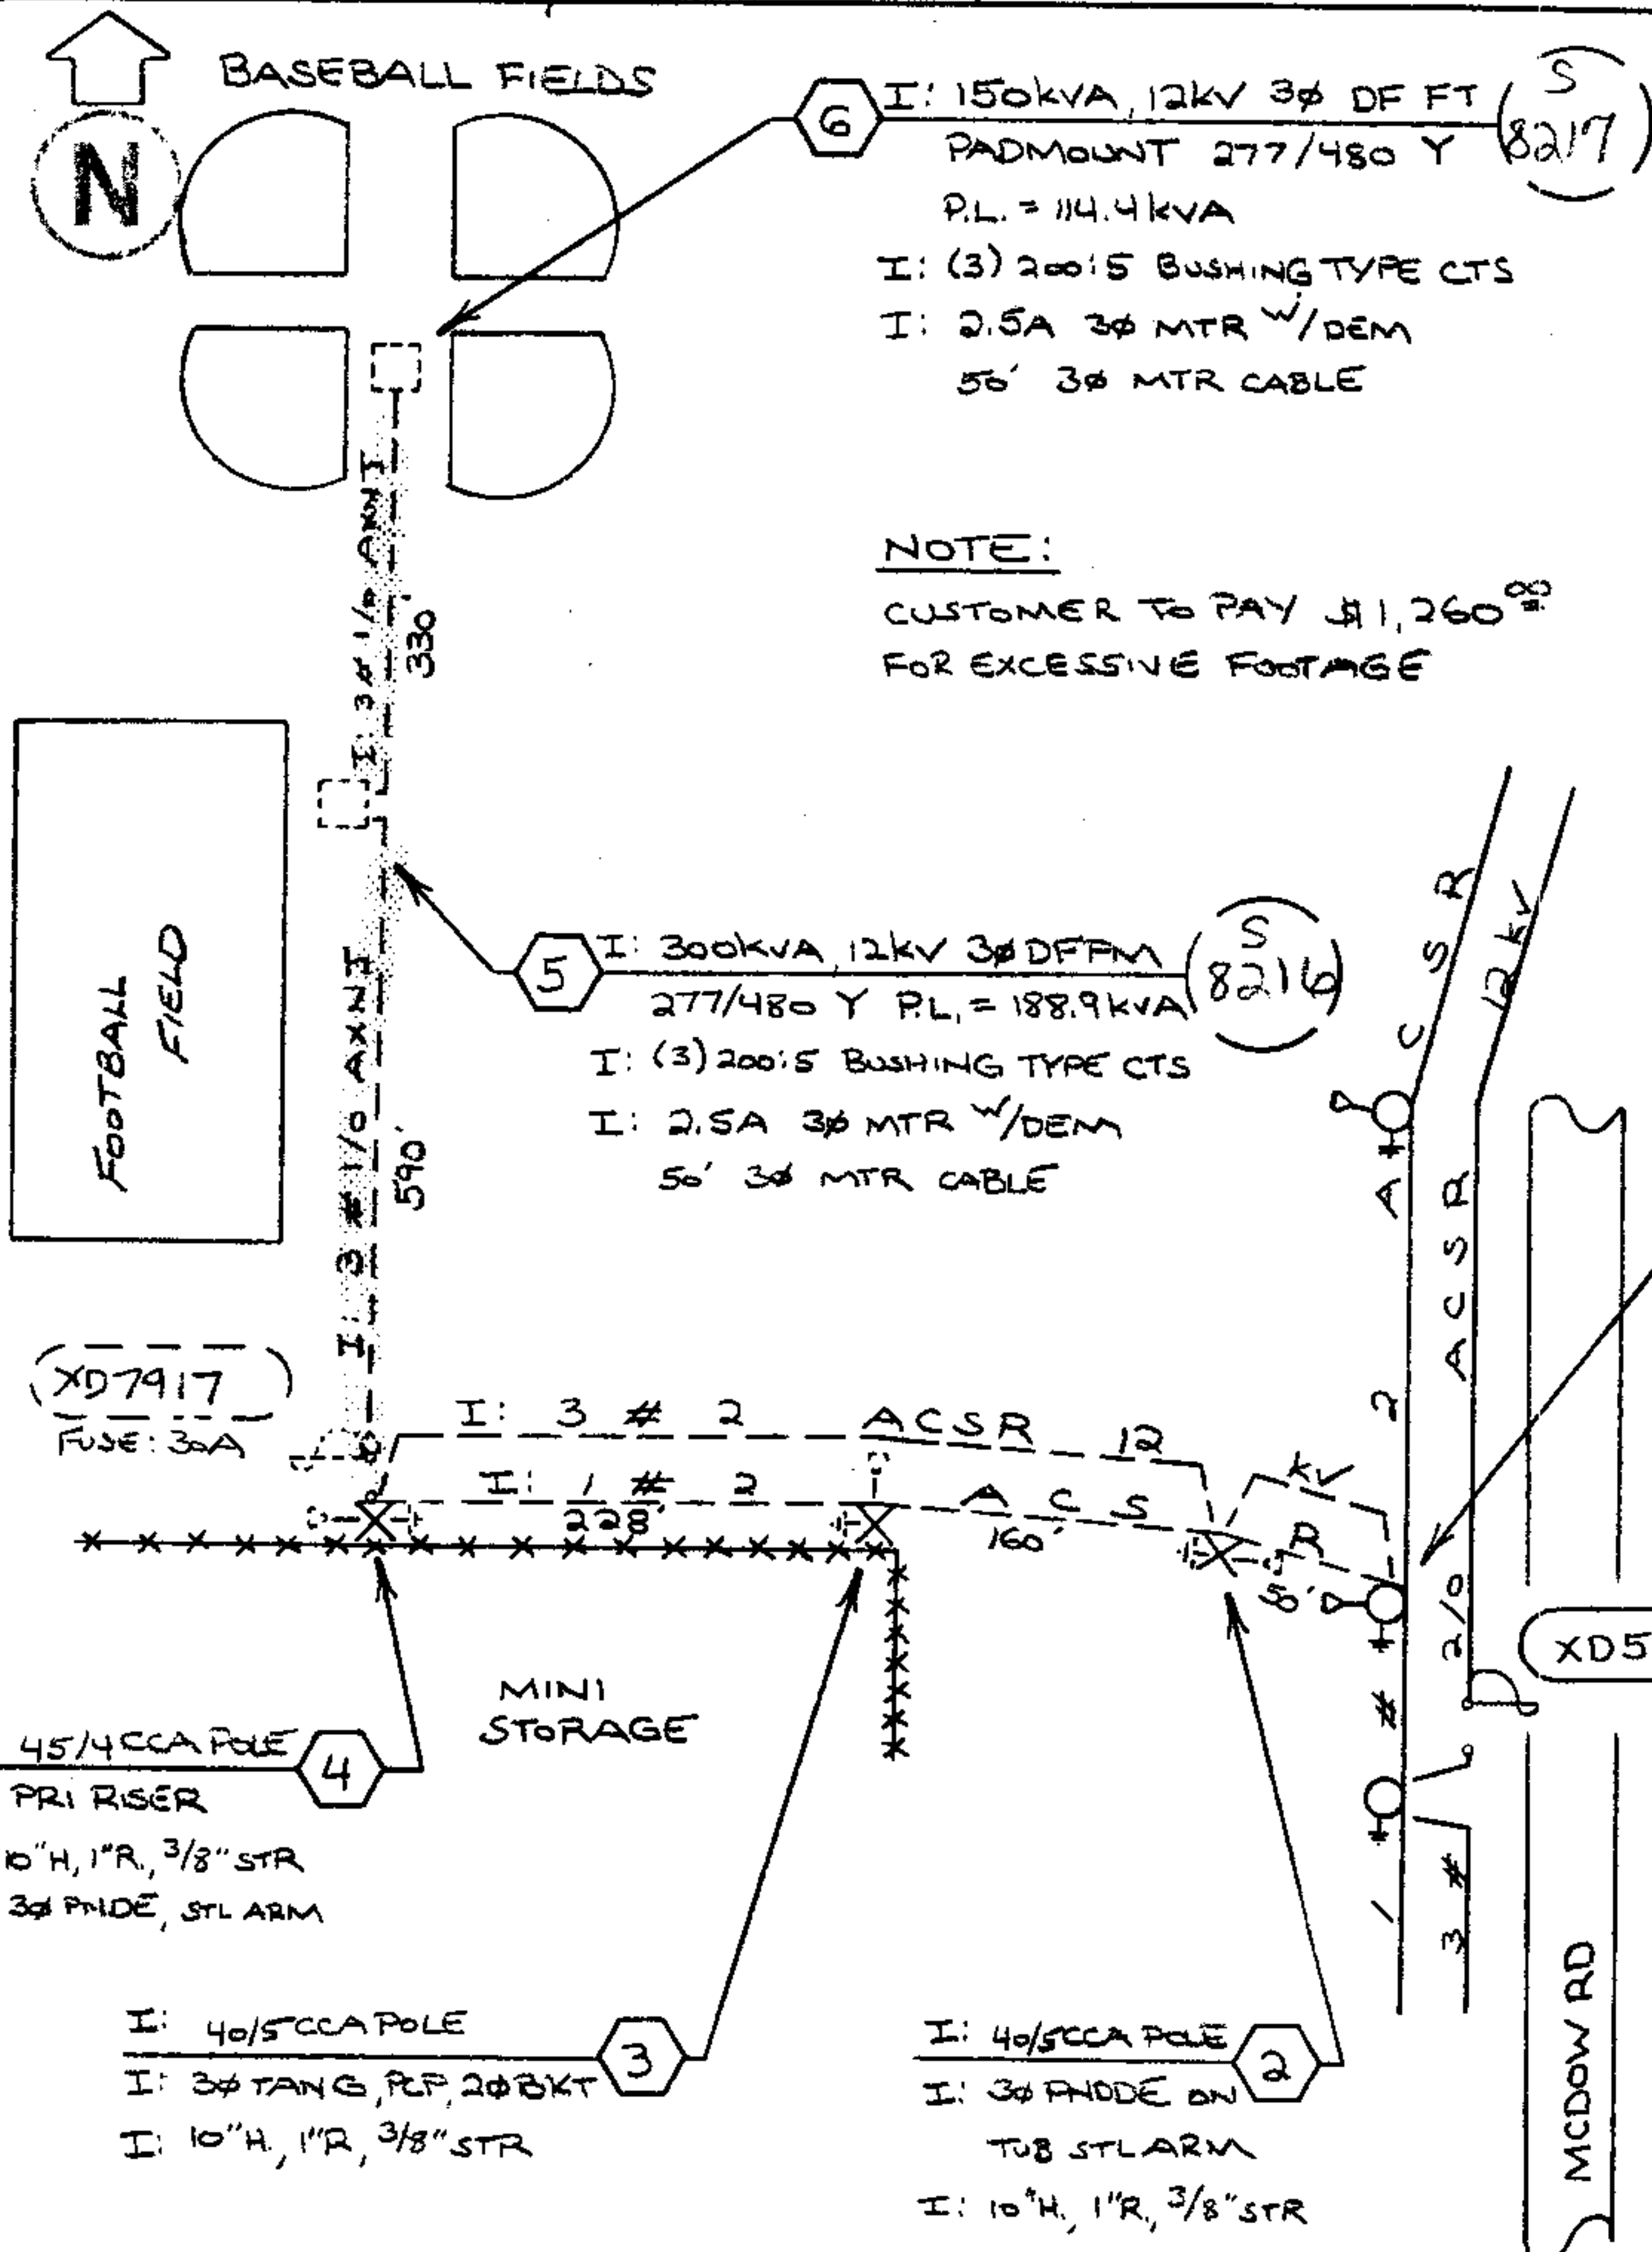 N
BASEBALL FIELDS
6
I: 150kVA, 12kV 3ø DF FT
S
8217
PADMOUNT 277/480 Y
P.L. = 114.4kVA
I: (3) 200:5 BUSHING TYPE CTS
I: 2.5A 3ø MTR W/DEM
50' 3ø MTR CABLE
330'
NOTE:
CUSTOMER TO PAY $1,260.00
FOR EXCESSIVE FOOTAGE
FOOTBALL
FIELD
5
I: 300kVA, 12kV 3ø DFFM
S
8216
277/480 Y P.L. = 188.9kVA
I: (3) 200:5 BUSHING TYPE CTS
I: 2.5A 3ø MTR W/DEM
50' 3ø MTR CABLE
I: 3 # 1/0 AXNJ
590'
1 # 2 ACSR
3 # 2/0 ACSR 12kV
XD7917
FUSE: 30A
I: 3 # 2 ACSR 12 kV
I: 1 # 2 ACSR
228'
160'
50'
XD5
MINI
STORAGE
45/4 CCA POLE
4
PRI RISER
10"H, 1"R, 3/8" STR
3ø PNDE, STL ARM
I: 40/5 CCA POLE
3
I: 3ø TANG, PCP, 2ø BKT
I: 10"H, 1"R, 3/8" STR
I: 40/5 CCA POLE
2
I: 3ø PNDDE ON
TUB STL ARM
I: 10"H, 1"R, 3/8" STR
MCDOW RD